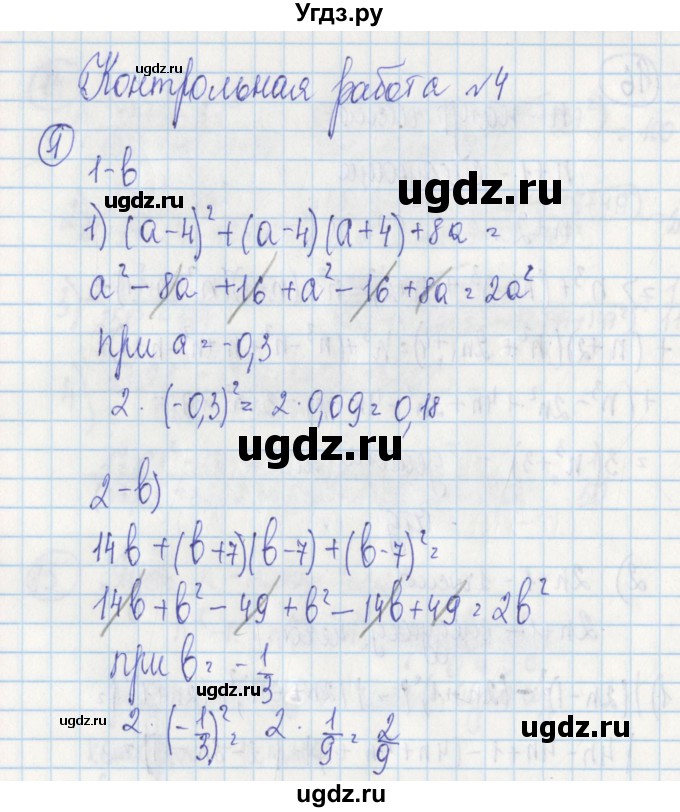 Угдз.ру
Контрольная работа №4
ugdz.ru
1
1-в
ugdz.ru
1) (a-4)² + (a-4)(a+4) + 8a =
a² - 8a + 16 + a² - 16 + 8a = 2a²
при a = -0,3
2 · (-0,3)² = 2 · 0,09 = 0,18
ugdz.ru
2-в)
14в + (в+7)(в-7) + (в-7)² =
14в + в² - 49 + в² - 14в + 49 = 2в²
при в = -1/3
ugdz.ru
2 · (-1/3)² = 2 · 1/9 = 2/9
ugdz.ru
ugdz.ru